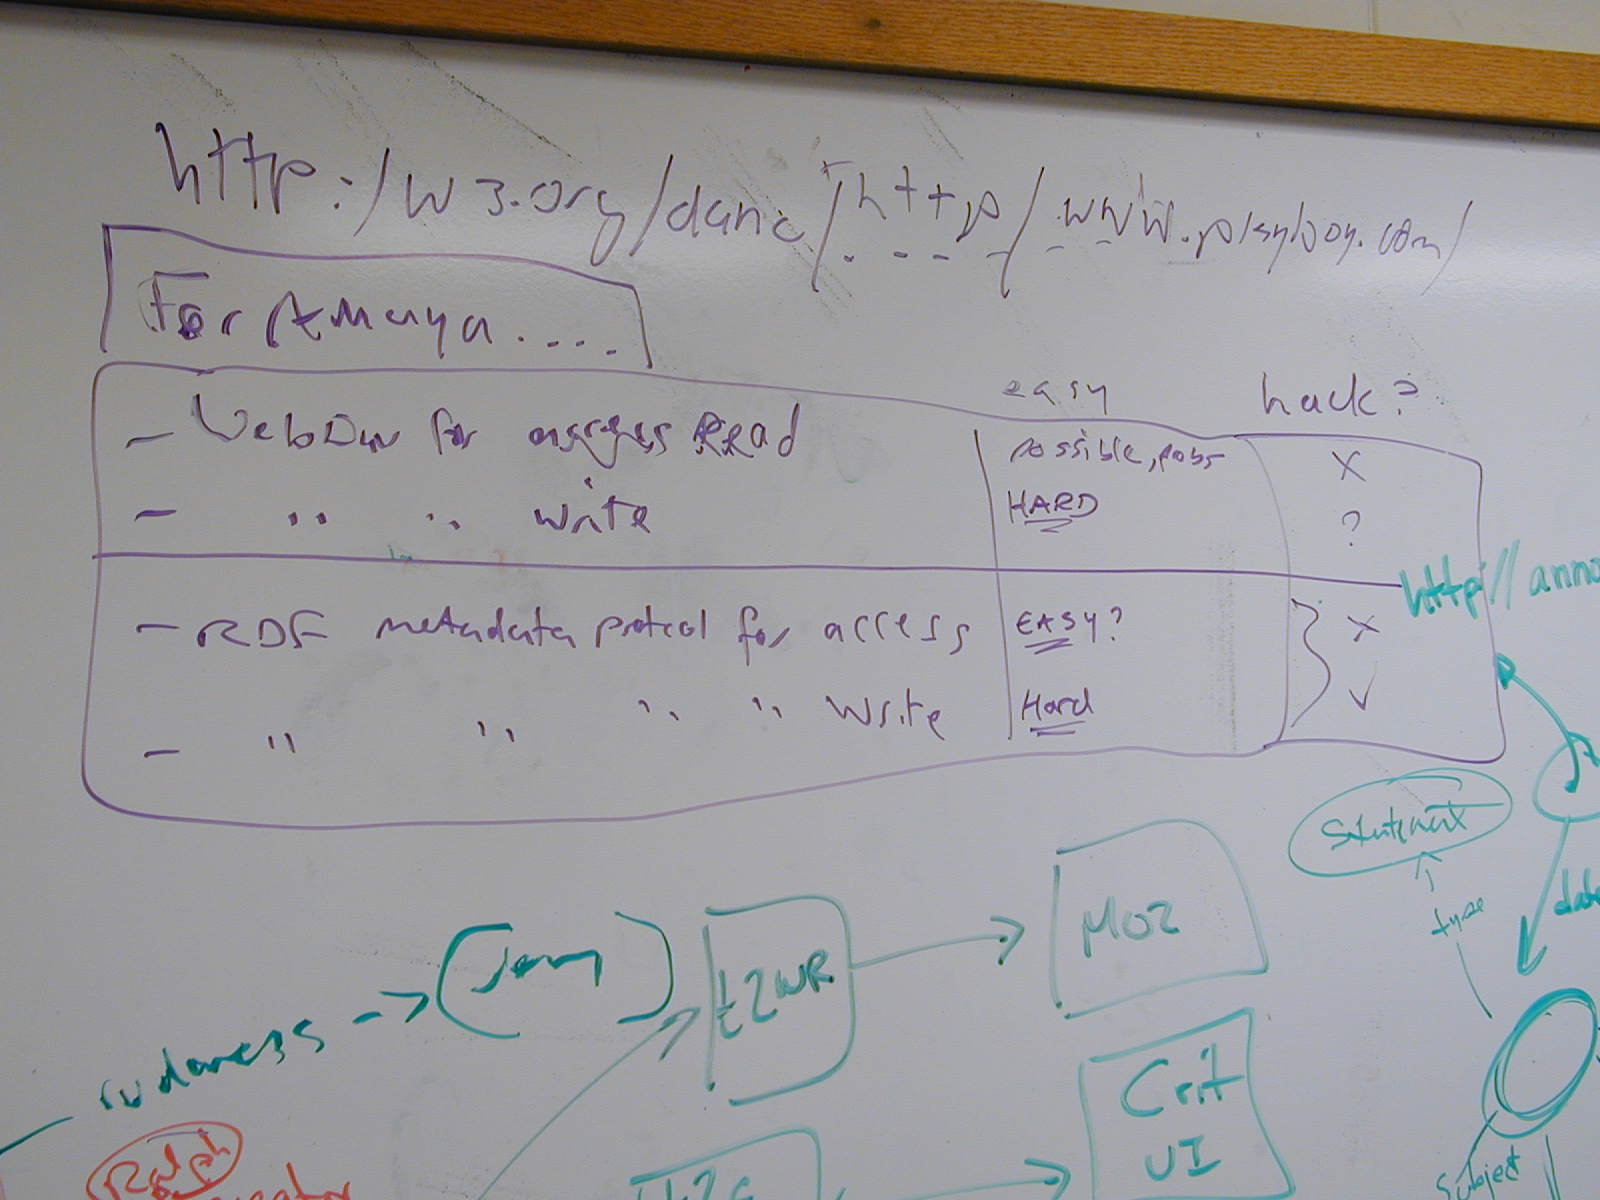 http:/w3.org/danc/http/www.playboy.com/
For Amaya....
easy hack?
- WebDav for access Read possible, probs X
- " " write HARD ?
- RDF metadata protcol for access EASY? X
- " " " " Write Hard ✓
http://anno
Statement
type
date
MOZ
rudeness -> (Jena)
Crit
UI
Ralph
Subject